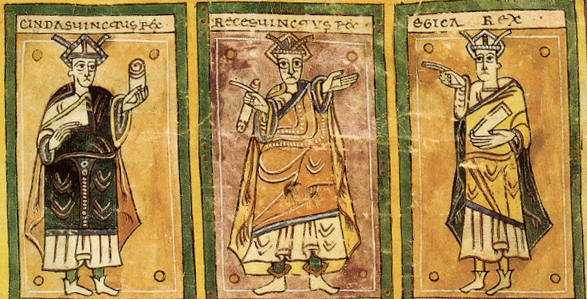 CINDASVINCTVS REX
RECESVINCTVS REX
EGICA REX